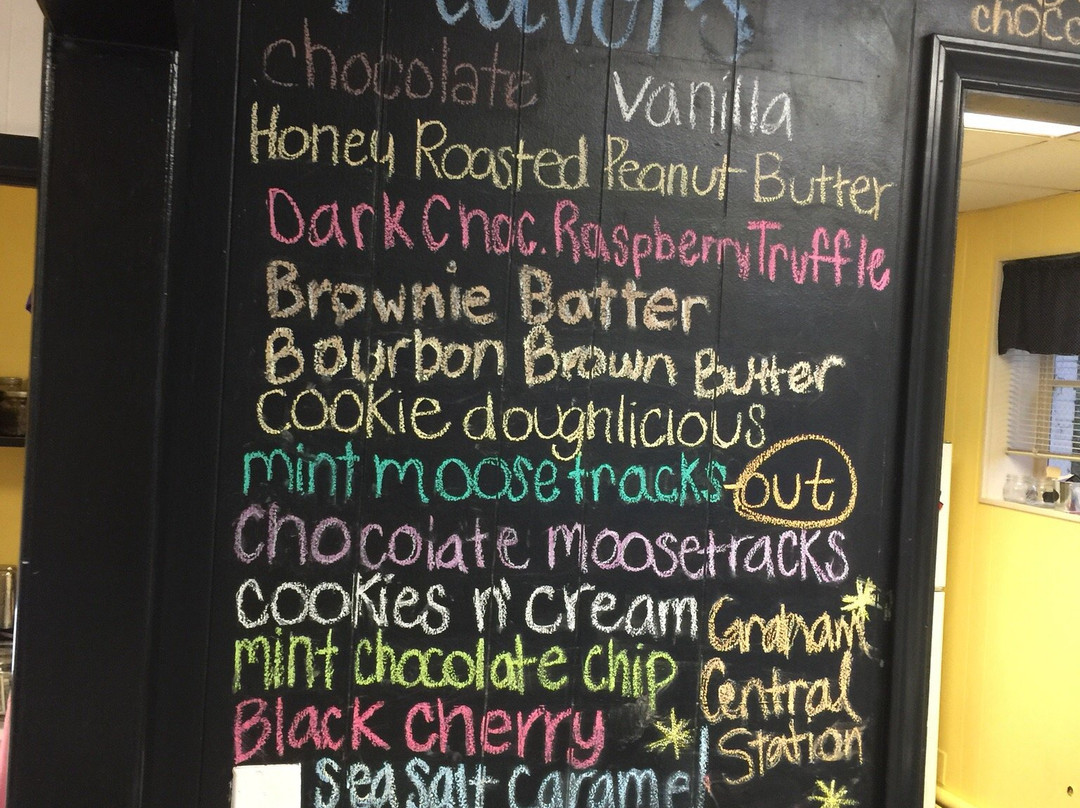 Flavors
choco
chocolate
vanilla
Honey Roasted Peanut Butter
Dark Choc. Raspberry Truffle
Brownie Batter
Bourbon Brown Butter
cookie doughlicious
mint moosetracks - out
chocolate moosetracks
cookies n' cream
Graham
Central
Station
mint chocolate chip
Black cherry
sea salt caramel